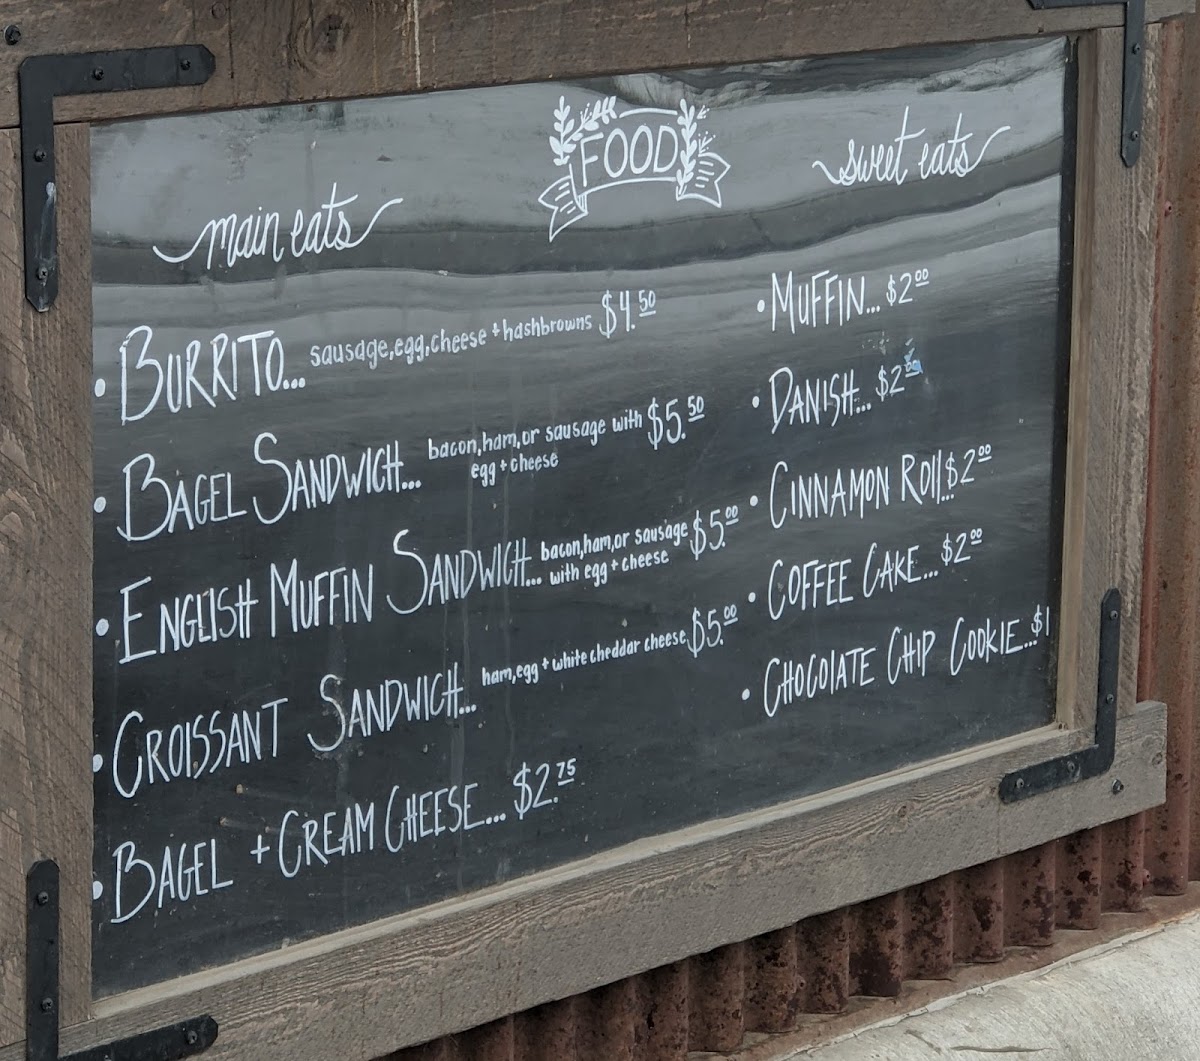 FOOD
main eats
• BURRITO... sausage,egg,cheese + hashbrowns $4.50
• BAGEL SANDWICH... bacon,ham,or sausage with $5.50
egg + cheese
• ENGLISH MUFFIN SANDWICH... bacon,ham,or sausage $5.00
with egg + cheese
• CROISSANT SANDWICH... ham,egg + white cheddar cheese $5.00
• BAGEL + CREAM CHEESE... $2.75
sweet eats
• MUFFIN... $2.00
• DANISH... $2
• CINNAMON ROLL...$2.00
• COFFEE CAKE... $2.00
• CHOCOLATE CHIP COOKIE...$1